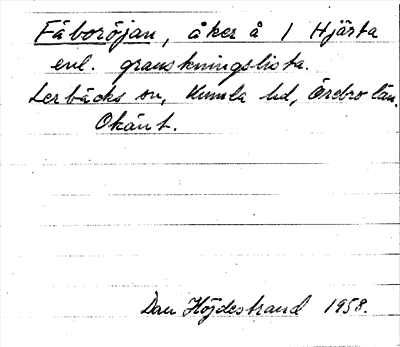 Fäboröjan, åker å 1 Hjärta
enl. granskningslista.
Lerbäcks sn, Kumla hd, Örebro län.
Okänt.
Dan Höjdestrand 1958.